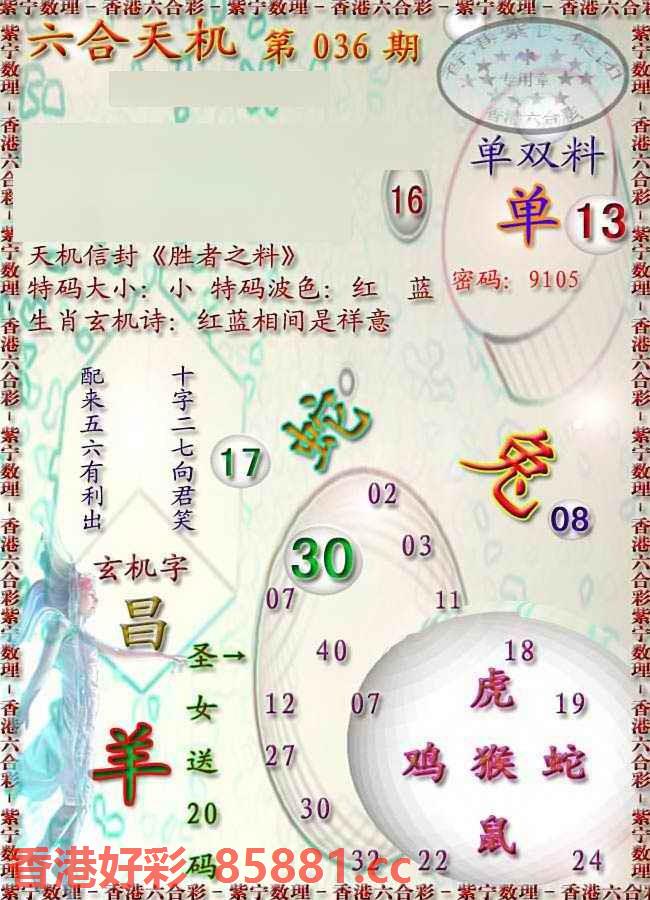 紫宁数理－香港六合彩－紫宁数理－香港六合彩－紫宁数理－香港六合彩
六合天机 第 036 期
专用章
香港六合彩
单双料
16
单 13
天机信封《胜者之料》
特码大小：小 特码波色：红 蓝
密码：9105
生肖玄机诗：红蓝相间是祥意
十字二七向君笑
配来五六有利出
蛇
17
兔
08
02
30
03
玄机字
昌
07
11
圣→
女
送
20
码
40
18
12
07
19
27
30
32
22
24
羊
虎
鸡 猴 蛇
鼠
香港好彩 85881.cc
紫宁数理－香港六合彩－紫宁数理－香港六合彩－紫宁数理－香港六合彩